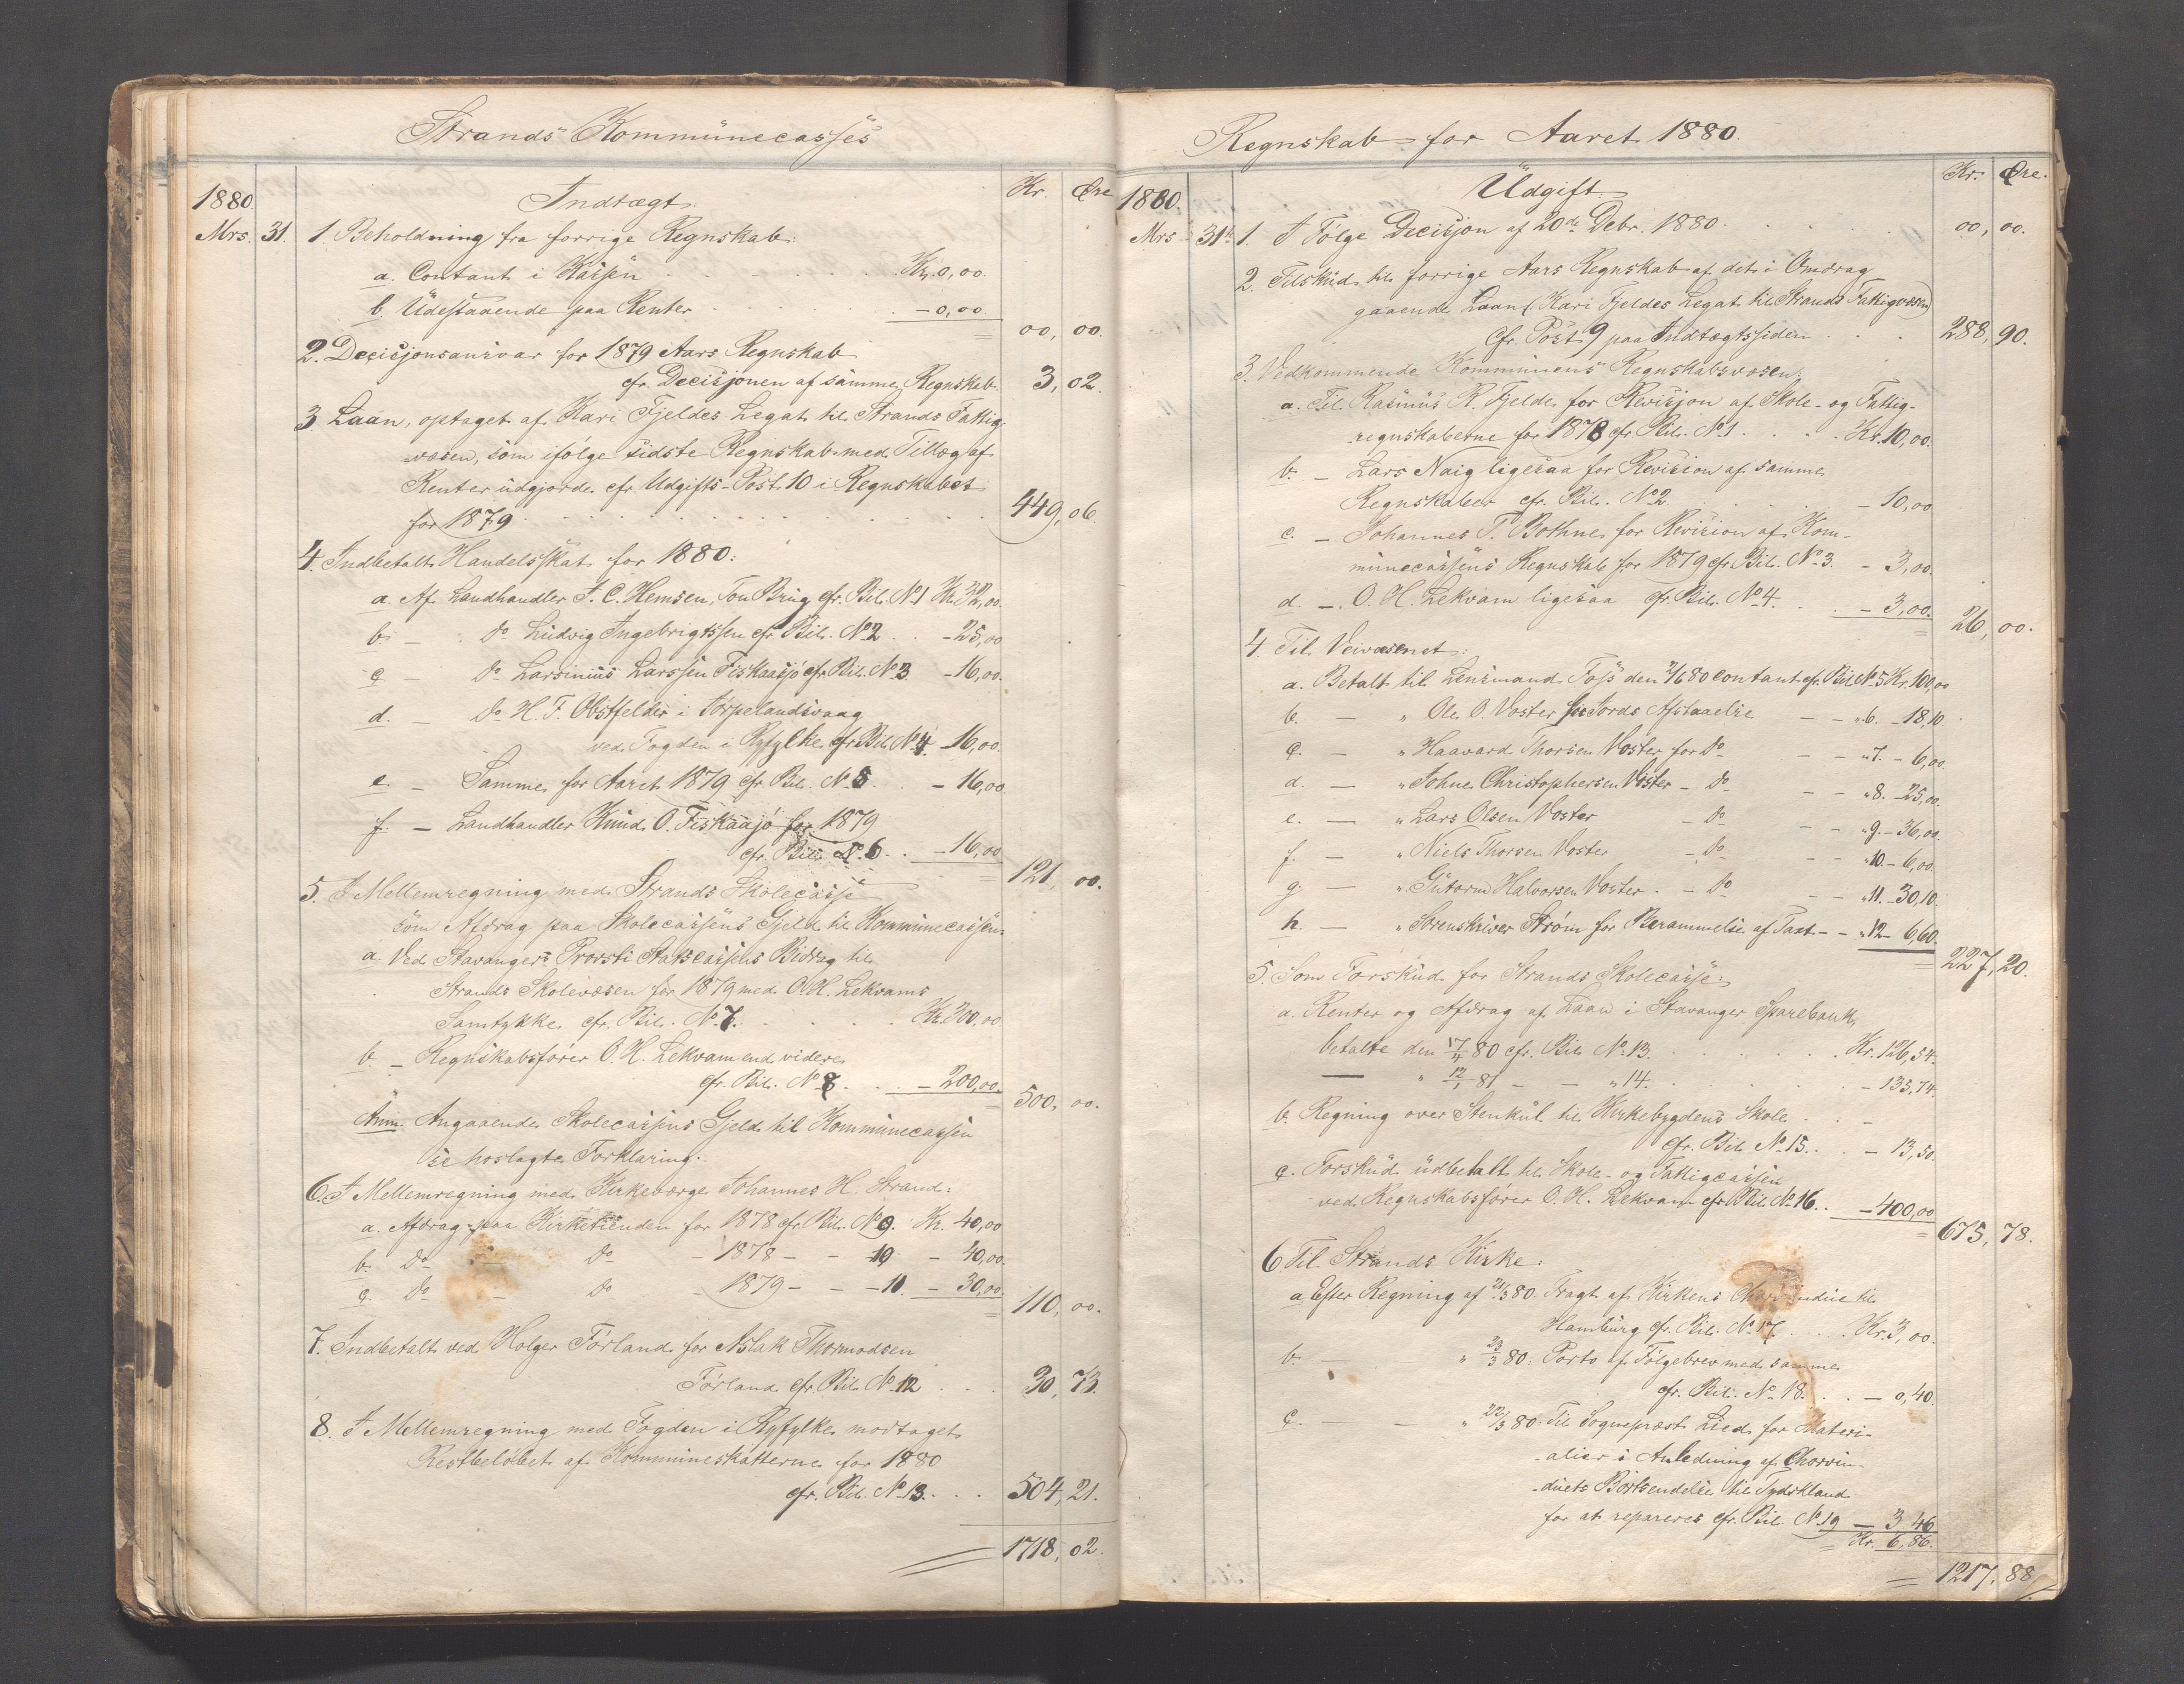 Strands Kommunecasses
1880. Indtægt. Kr. Øre
Mrs. 31. 1. Beholdning fra forrige Regnskab:
a. Contant i Kassen . . . Kr. 0,00.
b. Udestaaende paa Renter . . . - 0,00.
00, 00.
2. Decisjonsansvar for 1879 Aars Regnskab
cfr. Decisjonen af samme Regnskab. 3, 02.
3. Laan, optaget af Kari Fjeldes Legat til Strands Fattig-
væsen, som ifølge sidste Regnskab med Tillæg af
Renter udgjorde cfr. Udgifts-Post 10 i Regnskabet
for 1879 . . . 449, 06.
4. Indbetalt Handelsskat for 1880:
a. Af Landhandler A. C. Hemsen, Tou Brug cfr. Bil. No 1 Kr. 32,00.
b. - Do Ludvig Ingebrigtssen cfr. Bil. No 2 . . - 25,00
c. - Do Larsinius Larssen Fiskaasjø cfr. Bil. No 3. - 16,00.
d. - Do H. F. Obstfelder i Jørpelandsvaag
ved Fogden i Ryfylke cfr. Bil. No 4. - 16,00.
e. - Samme for Aaret 1879 cfr. Bil. No 5. . - 16,00.
f. - Landhandler Knud O. Fiskaasjø for 1879
cfr. Bil. No 6. . - 16,00
121, 00.
5. I Mellemregning med Strands Skolecasse
som Afdrag paa Skolecassens Gjeld til Kommunecassen:
a. Ved Stavangers Provsti Skolecasses Bidrag til
Strands Skolevæsen for 1879 med O. H. Lekvams
Samtykke cfr. Bil. No 7. . . . Kr. 300,00
b. - Regnskabsfører O. H. Lekvam end videre
cfr. Bil. No 8. . . - 200,00.
500, 00.
Anm. Angaaende Skolecassens Gjeld til Kommunecassen
se hoslagte Forklaring.
6. I Mellemregning med Kirkeværge Johannes H. Strand:
a. Afdrag paa Kirketienden for 1878 cfr. Bil. No 9. Kr. 40,00
b. Do - Do - 1878 - - 10 - 40,00.
c. Do - Do - 1879 - - 11 - 30,00.
110, 00.
7. Indbetalt ved Holger Førland for Aslak Thormodsen
Førland cfr. Bil. No 12 . . . 30, 73.
8. I Mellemregning med Fogden i Ryfylke modtaget
Restbeløbet af Kommuneskatterne for 1880
cfr. Bil. No 13. . . 504, 21.
1718, 02.
Regnskab for Aaret 1880.
1880. Udgift Kr. Øre.
Mrs 31te 1. I Følge Decisjon af 20de Debr. 1880. . . . 00, 00.
2. Tilskud til forrige Aars Regnskab af det i Omdrag
gaaende Laan (Kari Fjeldes Legat til Strands Fattigvæsen)
cfr. Post 9 paa Indtægtssiden . . . 288, 90.
3. Vedkommende Kommunens Regnskabsvæsen:
a. Til Rasmus R. Fjelde for Revisjon af Skole- og Fattig-
regnskaberne for 1878 cfr. Bil. No 1. . . . Kr. 10,00.
b. - Lars Naig ligesaa for Revision af samme
Regnskaber cfr. Bil. No 2 . . . - 10,00
c. - Johannes T. Bothne for Revision af Kom-
munecassens Regnskab for 1879 cfr. Bil. No 3. - 3,00.
d. - O. H. Lekvam ligesaa cfr. Bil. No 4. . . - 3,00.
26, 00.
4. Til Veivæsenet:
a. Betalt til Lensmand Foss den 2/6 80 contant cfr. Bil. No 5 Kr. 100,00
b. - " Ole O. Voster for Jords Afstaaelse - - " 6. - 18,10.
c. - " Haavard Thorsen Voster for Do - - " 7. - 6,00.
d. - " Johne Christophersen Voster - Do - - " 8. - 25,00.
e. - " Lars Olsen Voster - Do - - " 9. - 36,00.
f. - " Niels Thorsen Voster - Do - - " 10. - 6,00.
g. - " Gutorm Halvorsen Voster. - Do - - " 11. - 30,10.
h. - " Sorenskriver Strøm for Berammelse af Taxt - - " 12 - 6,60.
227, 20.
5. Som Forskud for Strands Skolecasse:
a. Renter og Afdrag af Laan i Stavanger Sparebank,
betalte den 17/4 80 cfr. Bil. No 13. . . . Kr. 126,54.
- " 12/1 81 - - " 14. . . . - 135,74.
b. Regning over Stenkul til Kirkebygdens Skole . . -
cfr. Bil. No 15. . . - 13,50.
c. Forskud udbetalt til Skole- og Fattigcassen
ved Regnskabsfører O. H. Lekvam cfr. Bil. No 16. . - 400,00
675, 78.
6. Til Strands Kirke:
a. Efter Regning af 21/3 80: Fragt af Kirkens til
Hamburg cfr. Bil. No 17. . . Kr. 3,00.
b. - - " 23/3 80: Porto af Følgebrev med samme
cfr. Bil. No 18. . . - 0,40.
c. - - " 22/3 80: Til Sognepræst Lied for Materi-
alier i Anledning af Chorvin-
duets Bortsendelse til Tydskland
for at repareres cfr. Bil. No 19 - 3 46
Kr. 6,86.
1217, 88